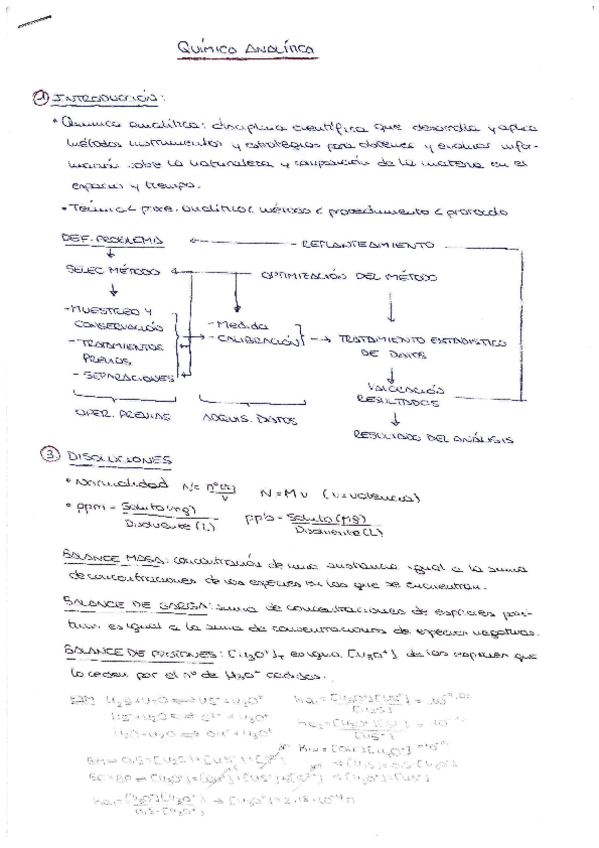 QUÍMICA ANALÍTICA
① INTRODUCCIÓN:
• Química analítica: disciplina científica que desarrolla y aplica
métodos instrumentos y estrategias para obtener y evaluar infor-
mación sobre la naturaleza y composición de la materia en el
espacio y tiempo.
• Técnica < proc. analítico < método < procedimiento < protocolo
DEF. PROBLEMA ← REPLANTEAMIENTO
SELEC MÉTODO ← OPTIMIZACIÓN DEL MÉTODO
- MUESTREO Y
CONSERVACIÓN
- TRATAMIENTOS
PREVIOS,
- SEPARACIONES
- Medida
- CALIBRACIÓN
→ TRATAMIENTO ESTADÍSTICO
DE DATOS
VALORACIÓN
RESULTADOS
OPER. PREVIAS
ADQUIS. DATOS
RESULTADO DEL ANÁLISIS
③ DISOLUCIONES
• Normalidad N = nº eq / V N = M v (v = valencia)
• ppm = Soluto (mg) / Disolvente (L) ppb = Soluto (μg) / Disolvente (L)
BALANCE MASA: concentración de una sustancia igual a la suma
de concentraciones de las especies en las que se encuentran.
BALANCE DE CARGA: suma de concentraciones de especies posi-
tivas es igual a la suma de concentraciones de especies negativas.
BALANCE DE PROTONES: [H₃O⁺]ₜ es igual [H₃O⁺] de las especies que
lo ceden por el nº de H₃O⁺ cedidos.
H₂S + H₂O ⇌ HS⁻ + H₃O⁺
HS⁻ + H₂O ⇌ S²⁻ + H₃O⁺